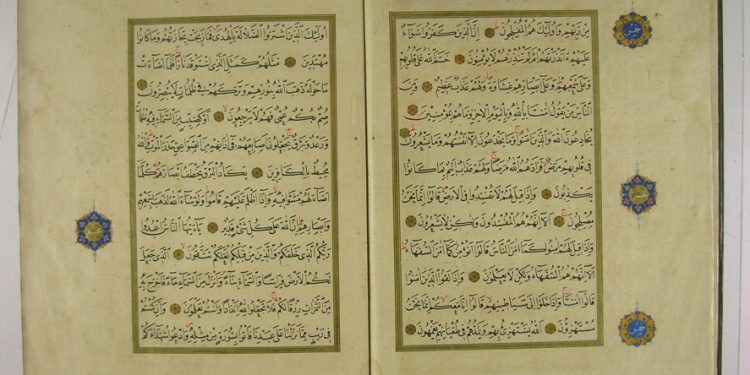 مِنْ رَبِّهِمْ وَأُولَٰئِكَ هُمُ الْمُفْلِحُونَ إِنَّ الَّذِينَ كَفَرُوا سَوَاءٌ
عَلَيْهِمْ ءَأَنْذَرْتَهُمْ أَمْ لَمْ تُنْذِرْهُمْ لَا يُؤْمِنُونَ خَتَمَ اللَّهُ عَلَىٰ قُلُوبِهِمْ
وَعَلَىٰ سَمْعِهِمْ وَعَلَىٰ أَبْصَارِهِمْ غِشَاوَةٌ وَلَهُمْ عَذَابٌ عَظِيمٌ وَمِنَ
النَّاسِ مَنْ يَقُولُ آمَنَّا بِاللَّهِ وَبِالْيَوْمِ الْآخِرِ وَمَا هُمْ بِمُؤْمِنِينَ
يُخَادِعُونَ اللَّهَ وَالَّذِينَ آمَنُوا وَمَا يَخْدَعُونَ إِلَّا أَنْفُسَهُمْ وَمَا يَشْعُرُونَ
فِي قُلُوبِهِمْ مَرَضٌ فَزَادَهُمُ اللَّهُ مَرَضًا وَلَهُمْ عَذَابٌ أَلِيمٌ بِمَا كَانُوا
يَكْذِبُونَ وَإِذَا قِيلَ لَهُمْ لَا تُفْسِدُوا فِي الْأَرْضِ قَالُوا إِنَّمَا نَحْنُ
مُصْلِحُونَ أَلَا إِنَّهُمْ هُمُ الْمُفْسِدُونَ وَلَٰكِنْ لَا يَشْعُرُونَ
وَإِذَا قِيلَ لَهُمْ آمِنُوا كَمَا آمَنَ النَّاسُ قَالُوا أَنُؤْمِنُ كَمَا آمَنَ السُّفَهَاءُ
أَلَا إِنَّهُمْ هُمُ السُّفَهَاءُ وَلَٰكِنْ لَا يَعْلَمُونَ وَإِذَا لَقُوا الَّذِينَ آمَنُوا
قَالُوا آمَنَّا وَإِذَا خَلَوْا إِلَىٰ شَيَاطِينِهِمْ قَالُوا إِنَّا مَعَكُمْ إِنَّمَا نَحْنُ
مُسْتَهْزِؤُنَ اللَّهُ يَسْتَهْزِئُ بِهِمْ وَيَمُدُّهُمْ فِي طُغْيَانِهِمْ يَعْمَهُونَ
أُولَٰئِكَ الَّذِينَ اشْتَرَوُا الضَّلَالَةَ بِالْهُدَىٰ فَمَا رَبِحَتْ تِجَارَتُهُمْ وَمَا كَانُوا
مُهْتَدِينَ مَثَلُهُمْ كَمَثَلِ الَّذِي اسْتَوْقَدَ نَارًا فَلَمَّا أَضَاءَتْ
مَا حَوْلَهُ ذَهَبَ اللَّهُ بِنُورِهِمْ وَتَرَكَهُمْ فِي ظُلُمَاتٍ لَا يُبْصِرُونَ
صُمٌّ بُكْمٌ عُمْيٌ فَهُمْ لَا يَرْجِعُونَ أَوْ كَصَيِّبٍ مِنَ السَّمَاءِ فِيهِ ظُلُمَاتٌ
وَرَعْدٌ وَبَرْقٌ يَجْعَلُونَ أَصَابِعَهُمْ فِي آذَانِهِمْ مِنَ الصَّوَاعِقِ حَذَرَ الْمَوْتِ وَاللَّهُ
مُحِيطٌ بِالْكَافِرِينَ يَكَادُ الْبَرْقُ يَخْطَفُ أَبْصَارَهُمْ كُلَّمَا
أَضَاءَ لَهُمْ مَشَوْا فِيهِ وَإِذَا أَظْلَمَ عَلَيْهِمْ قَامُوا وَلَوْ شَاءَ اللَّهُ لَذَهَبَ بِسَمْعِهِمْ
وَأَبْصَارِهِمْ إِنَّ اللَّهَ عَلَىٰ كُلِّ شَيْءٍ قَدِيرٌ يَا أَيُّهَا النَّاسُ اعْبُدُوا
رَبَّكُمُ الَّذِي خَلَقَكُمْ وَالَّذِينَ مِنْ قَبْلِكُمْ لَعَلَّكُمْ تَتَّقُونَ الَّذِي جَعَلَ
لَكُمُ الْأَرْضَ فِرَاشًا وَالسَّمَاءَ بِنَاءً وَأَنْزَلَ مِنَ السَّمَاءِ مَاءً فَأَخْرَجَ بِهِ
مِنَ الثَّمَرَاتِ رِزْقًا لَكُمْ فَلَا تَجْعَلُوا لِلَّهِ أَنْدَادًا وَأَنْتُمْ تَعْلَمُونَ وَإِنْ كُنْتُمْ
فِي رَيْبٍ مِمَّا نَزَّلْنَا عَلَىٰ عَبْدِنَا فَأْتُوا بِسُورَةٍ مِنْ مِثْلِهِ وَادْعُوا شُهَدَاءَكُمْ